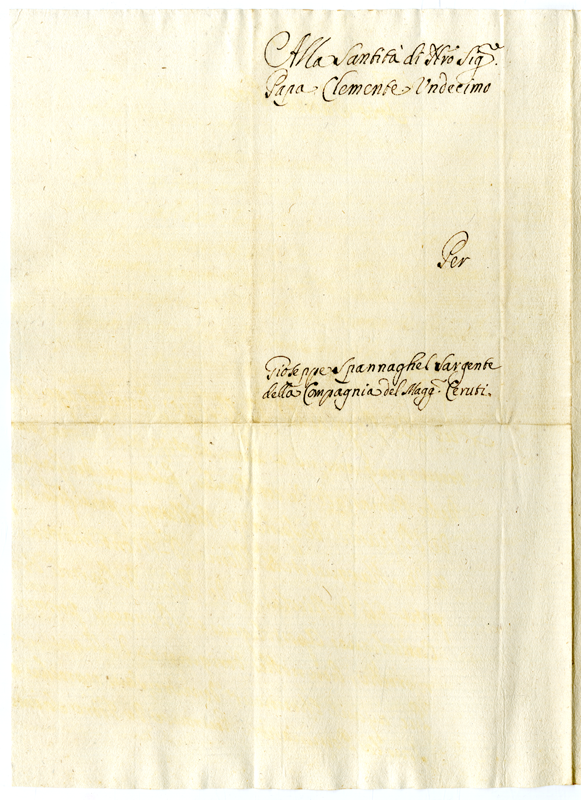 Alla Santità di Nro Sig.re
Papa Clemente Undecimo
Per
Gioseppe Spannaghel Sargente
della Compagnia del Magg.r Ceruti.